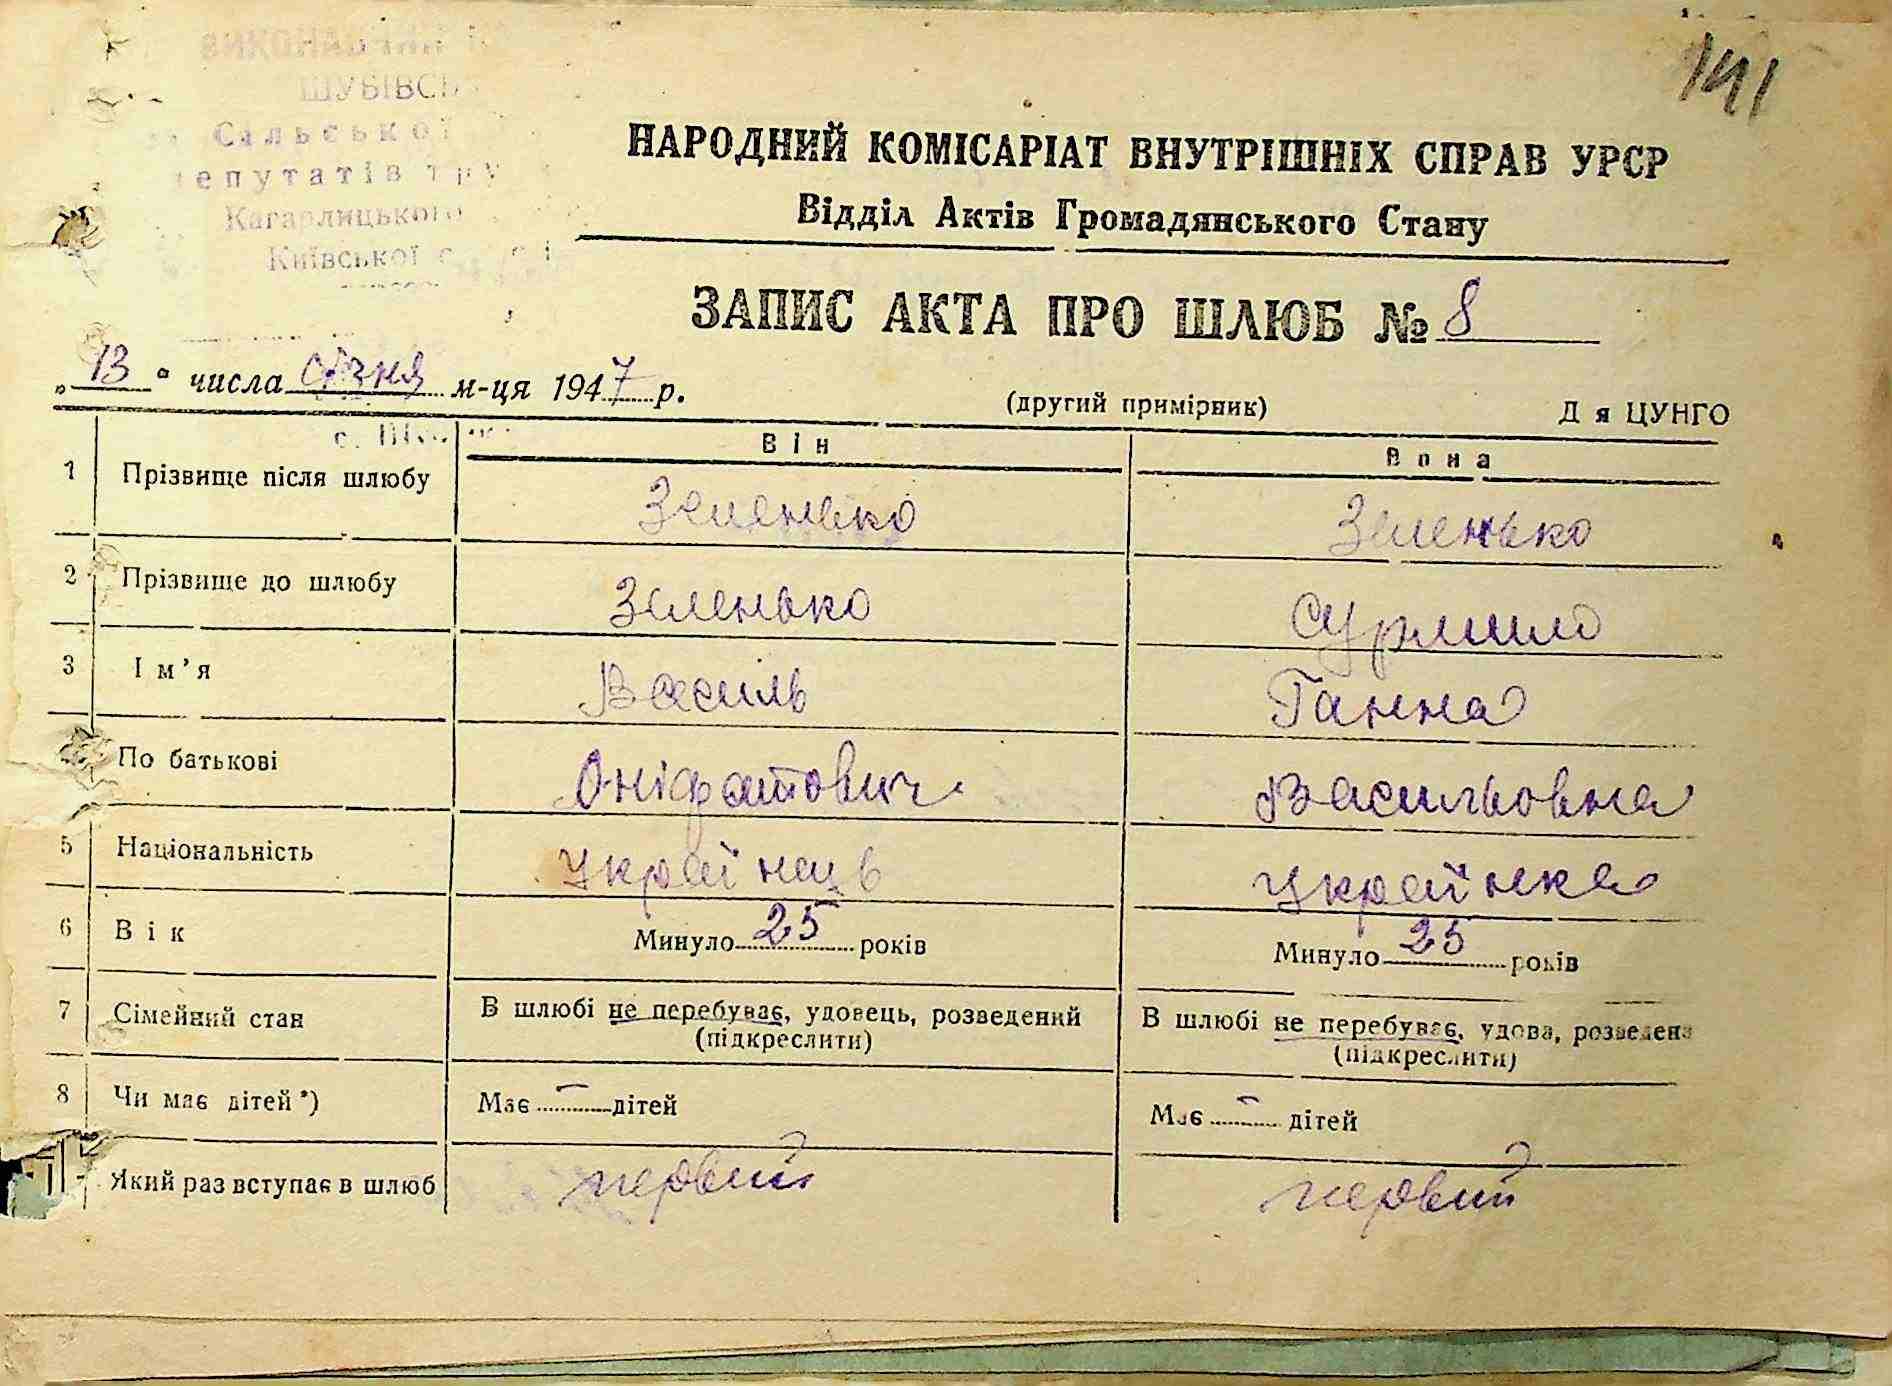 141
ВИКОНАВЧИЙ
ШУБІВСЬ
Сільської
депутатів тру
Кагарлицького
Київської
НАРОДНИЙ КОМІСАРІАТ ВНУТРІШНІХ СПРАВ УРСР
Відділ Актів Громадянського Стану
ЗАПИС АКТА ПРО ШЛЮБ № 8
„13“ числа січня м-ця 1947 р.
(другий примірник) Д я ЦУНГО
Він Вона
1 Прізвище після шлюбу Зеленько Зеленько
2 Прізвище до шлюбу Зеленько Сурмило
3 Ім’я Василь Ганна
По батькові Оніфатович Васильовна
5 Національність українець українка
6 Вік Минуло 25 років Минуло 25 років
7 Сімейний стан В шлюбі не перебуває, удовець, розведений В шлюбі не перебуває, удова, розведена
(підкреслити) (підкреслити)
8 Чи має дітей*) Має - дітей Має - дітей
Який раз вступає в шлюб первий первий